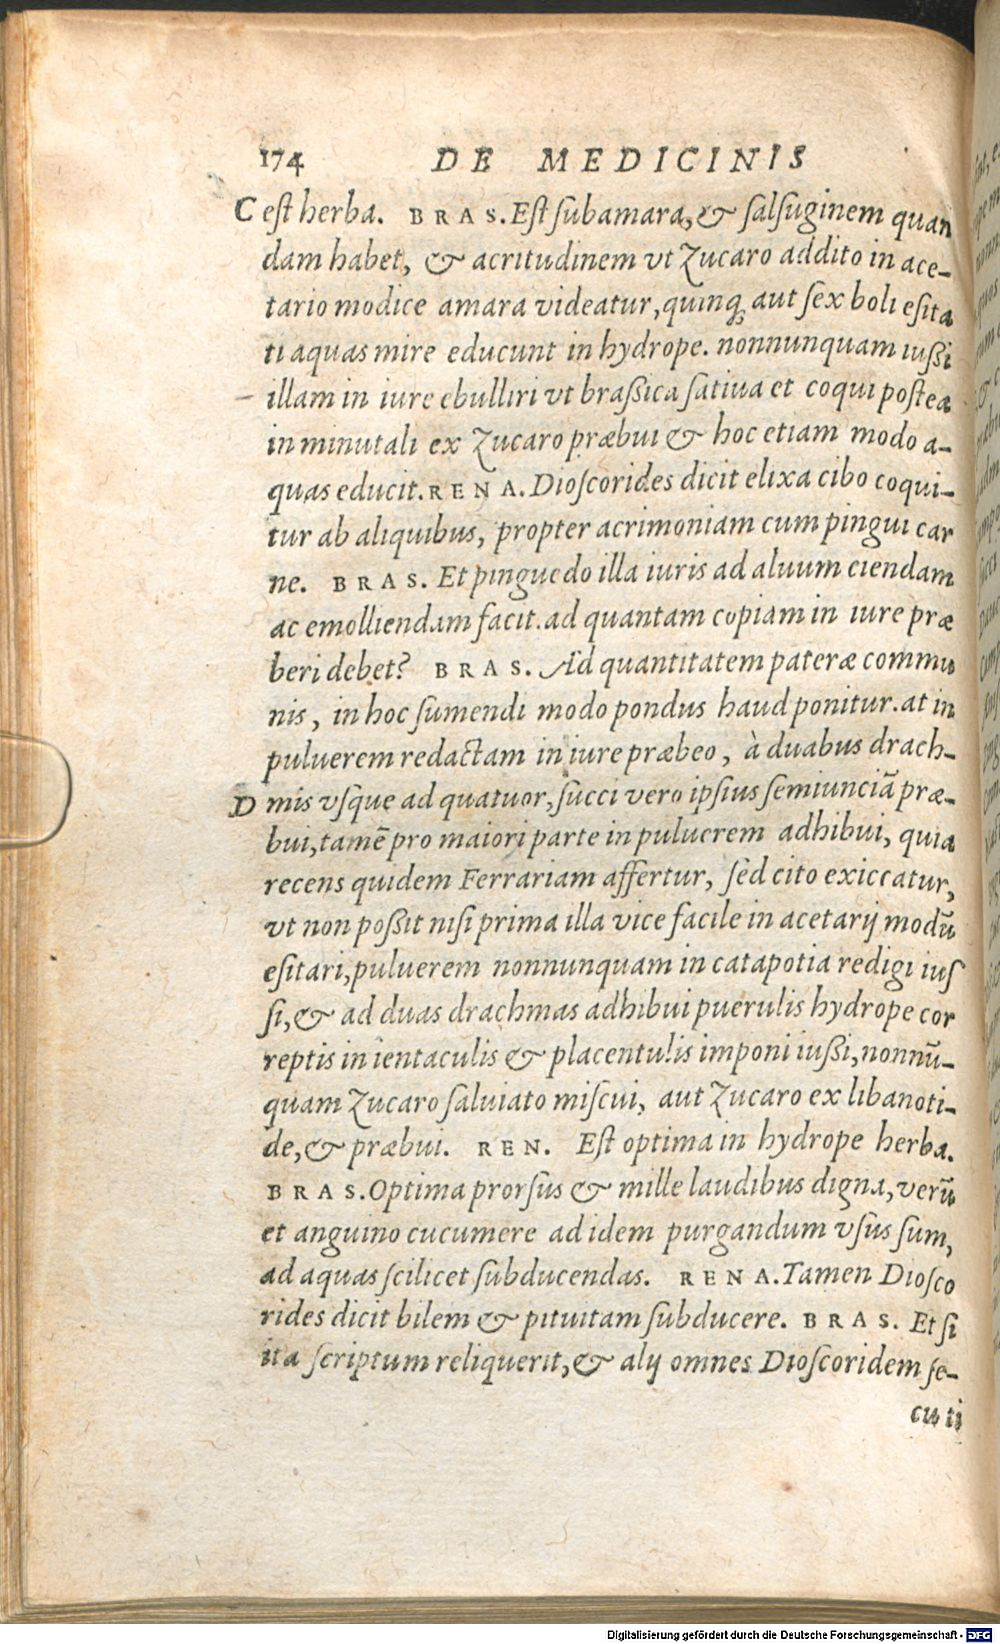 174 DE MEDICINIS
C est herba. BRAS. Est subamara, & salsuginem quan
dam habet, & acritudinem vt Zucaro addito in ace-
tario modice amara videatur, quinq; aut sex boli esita
ti aquas mire educunt in hydrope. nonnunquam iußi
illam in iure ebulliri vt braßica satiua et coqui postea
in minutali ex Zucaro præbui & hoc etiam modo a-
quas educit. RENA. Dioscorides dicit elixa cibo coqui-
tur ab aliquibus, propter acrimoniam cum pingui car
ne. BRAS. Et pinguedo illa iuris ad aluum ciendam
ac emolliendam facit. ad quantam copiam in iure præ
beri debet? BRAS. Ad quantitatem pateræ commu
nis, in hoc sumendi modo pondus haud ponitur. at in
puluerem redactam in iure præbeo, à duabus drach-
D mis vsque ad quatuor, succi vero ipsius semiunciã præ-
bui, tamẽ pro maiori parte in puluerem adhibui, quia
recens quidem Ferrariam affertur, sed cito exiccatur,
vt non poßit nisi prima illa vice facile in acetarij modũ
esitari, puluerem nonnunquam in catapotia redigi ius
si, & ad duas drachmas adhibui puerulis hydrope cor
reptis in ientaculis & placentulis imponi iußi, nonnũ-
quam Zucaro saluiato miscui, aut Zucaro ex libanoti-
de, & præbui. REN. Est optima in hydrope herba.
BRAS. Optima prorsus & mille laudibus digna, verũ
et anguino cucumere ad idem purgandum vsus sum,
ad aquas scilicet subducendas. RENA. Tamen Diosco
rides dicit bilem & pituitam subducere. BRAS. Et si
ita scriptum reliquerit, & alij omnes Dioscoridem se-
cuti
Digitalisierung gefördert durch die Deutsche Forschungsgemeinschaft - DFG